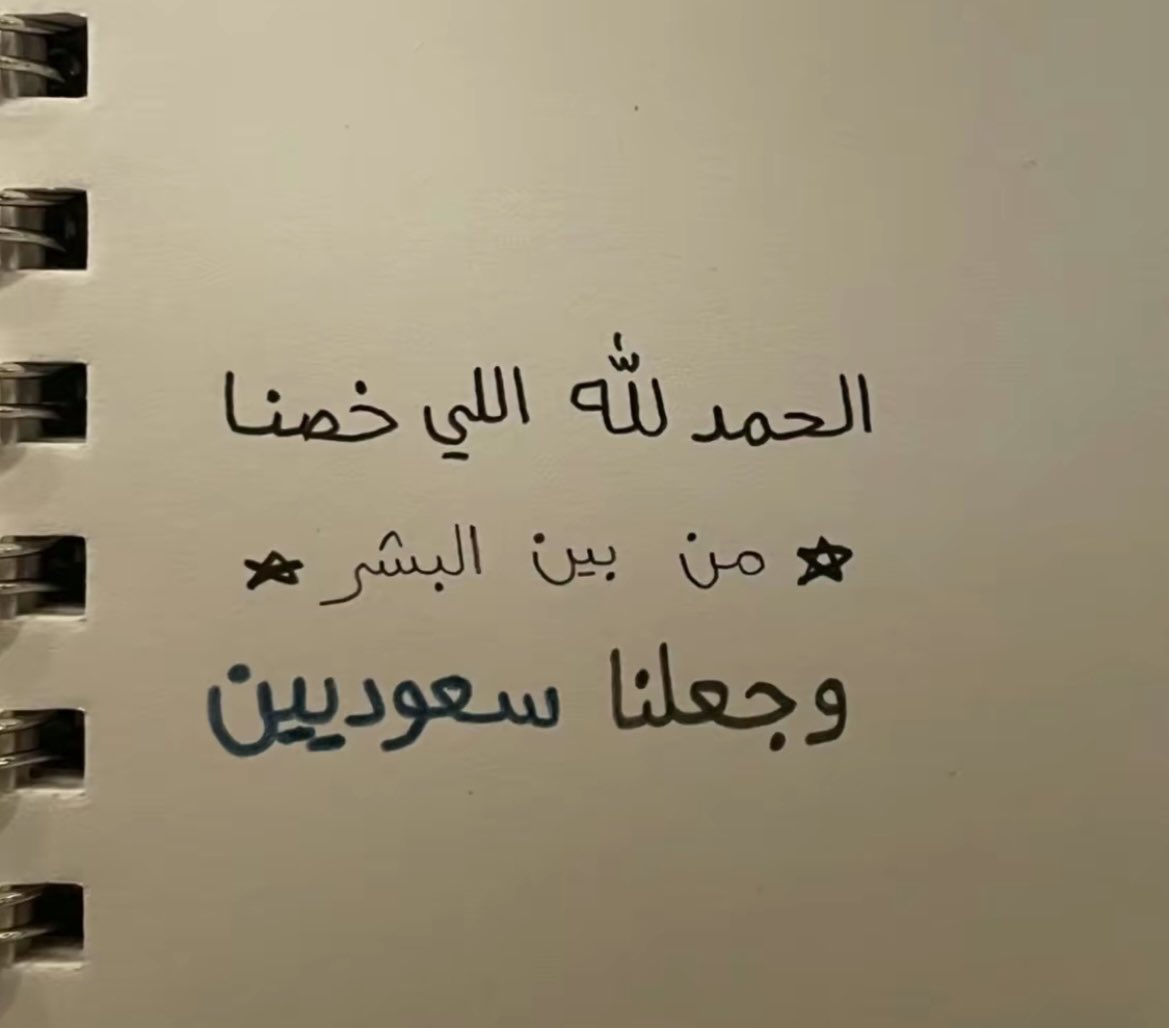 الحمد لله اللي خصنا
من بين البشر
وجعلنا سعوديين